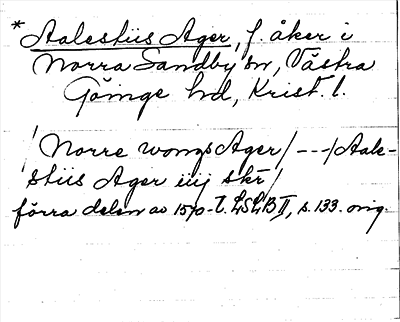 * Aalestiis Ager, f. åker i
Norra Sandby sn, Västra
Göinge hd, Krist. l.
/ Norre wongs Ager / --- / Aale-
stiis Ager iiij skr /
förra delen av 1570-t. LSLB II, s. 133. orig.